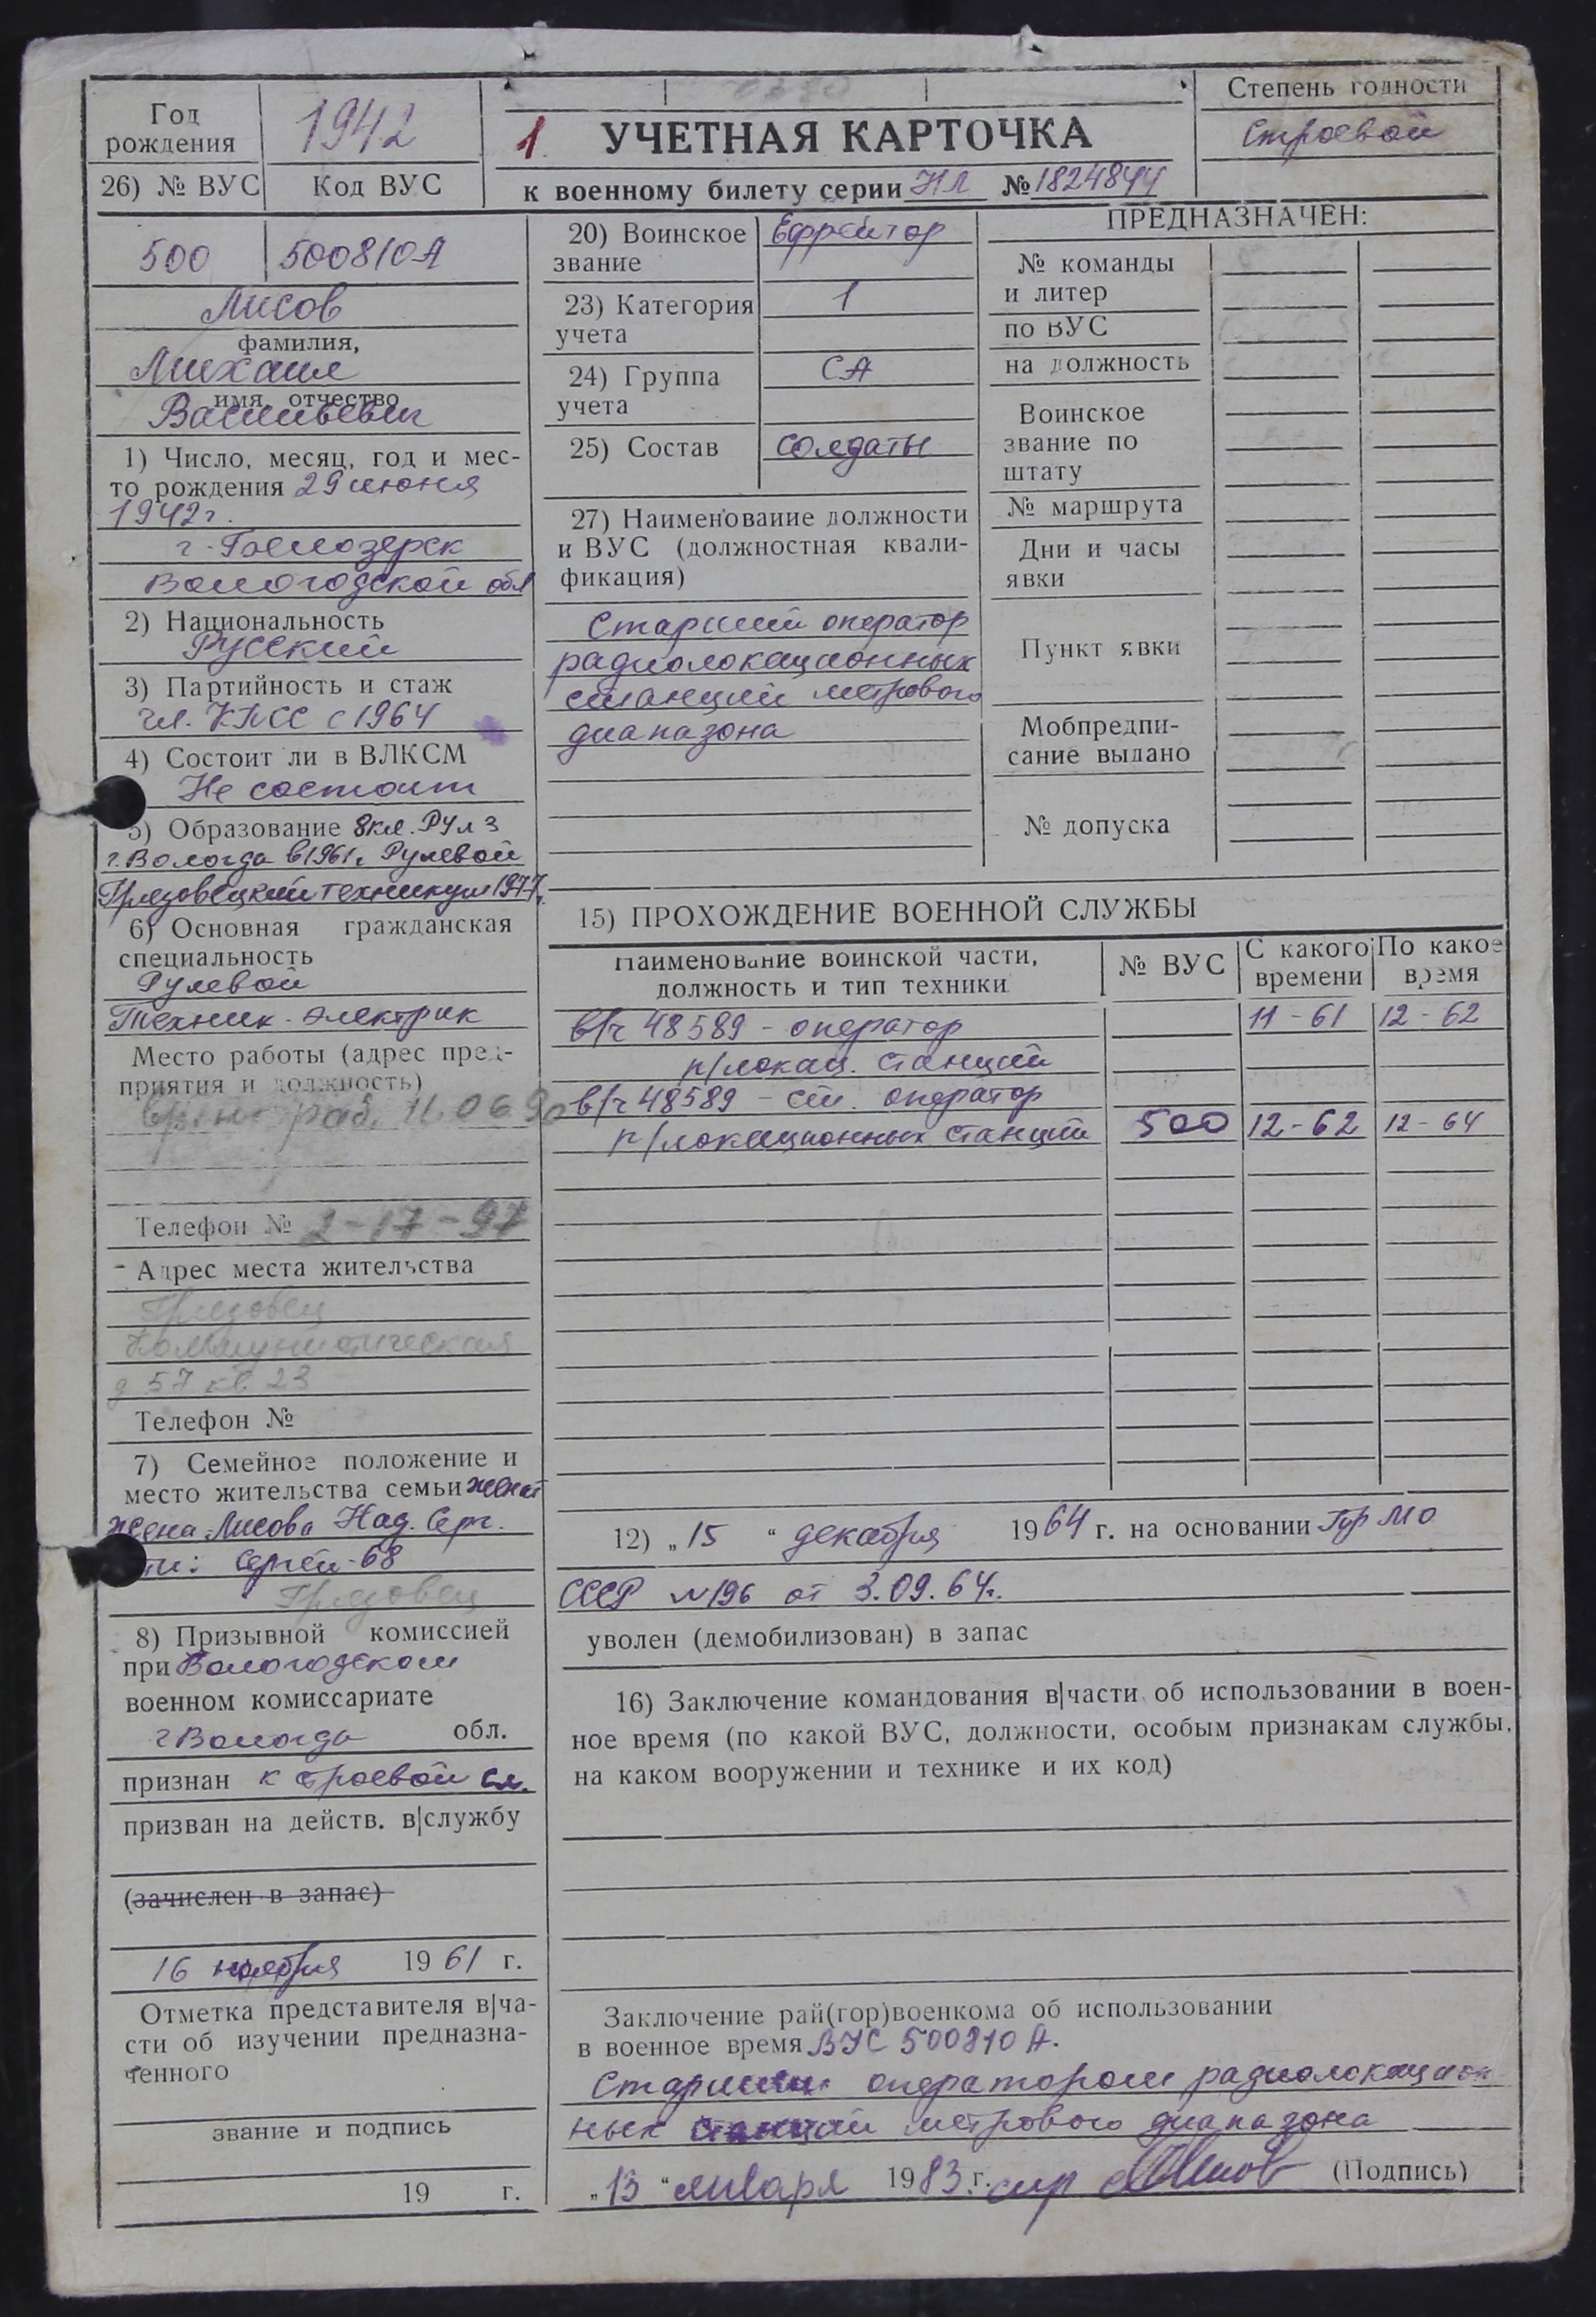 Год
рождения
1942
26) № ВУС
Код ВУС
1 УЧЕТНАЯ КАРТОЧКА
к военному билету серии НЛ № 1824844
Степень годности
Строевой
500
500810А
Лисов
фамилия,
Михаил
имя, отчество
Васильевич
1) Число, месяц, год и мес-
то рождения 29 июня
1942г.
г. Белозерск
Вологодской обл
2) Национальность
Русский
3) Партийность и стаж
чл. КПСС с 1964
4) Состоит ли в ВЛКСМ
Не состоит
5) Образование 8кл. РУ л 3
г. Вологда в 1961г Рулевой
Грязовецкий техникум 1977г.
6) Основная гражданская
специальность
Рулевой
Техник-электрик
Место работы (адрес пред-
приятия и должность)
раб. 11.06.90
Телефон № 2-17-97
Адрес места жительства
Грязовец
Коммунистическая
д 57 кв. 23
Телефон №
7) Семейное положение и
место жительства семьи женат
жена Лисова Над. Серг.
Сергей-68
Грязовец
8) Призывной комиссией
при Вологодском
военном комиссариате
г Вологда обл.
признан к строевой сл.
призван на действ. в|службу
(зачислен в запас)
16 ноября 1961 г.
Отметка представителя в|ча-
сти об изучении предназна-
ченного
звание и подпись
19 г.
20) Воинское
звание
Ефрейтор
23) Категория
учета
1
24) Группа
учета
СА
25) Состав
солдаты
27) Наименование должности
и ВУС (должностная квали-
фикация)
Старший оператор
радиолокационных
станций метрового
диапазона
ПРЕДНАЗНАЧЕН:
№ команды
и литер
по ВУС
на должность
Воинское
звание по
штату
№ маршрута
Дни и часы
явки
Пункт явки
Мобпредпи-
сание выдано
№ допуска
15) ПРОХОЖДЕНИЕ ВОЕННОЙ СЛУЖБЫ
Наименование воинской части,
должность и тип техники
№ ВУС
С какого
времени
По какое
время
в/ч 48589 - оператор 11-61 12-62
р/локац. станций
в/ч 48589 - ст. оператор
р/локационных станций 500 12-62 12-64
12) „15“ декабря 1964 г. на основании Пр МО
СССР №196 от 3.09.64г.
уволен (демобилизован) в запас
16) Заключение командования в|части об использовании в воен-
ное время (по какой ВУС, должности, особым признакам службы,
на каком вооружении и технике и их код)
Заключение рай(гор)военкома об использовании
в военное время ВУС 500810 А.
Старшим оператором радиолокацион
ных станций метрового диапазона
„13“ января 1983 г. (Подпись)